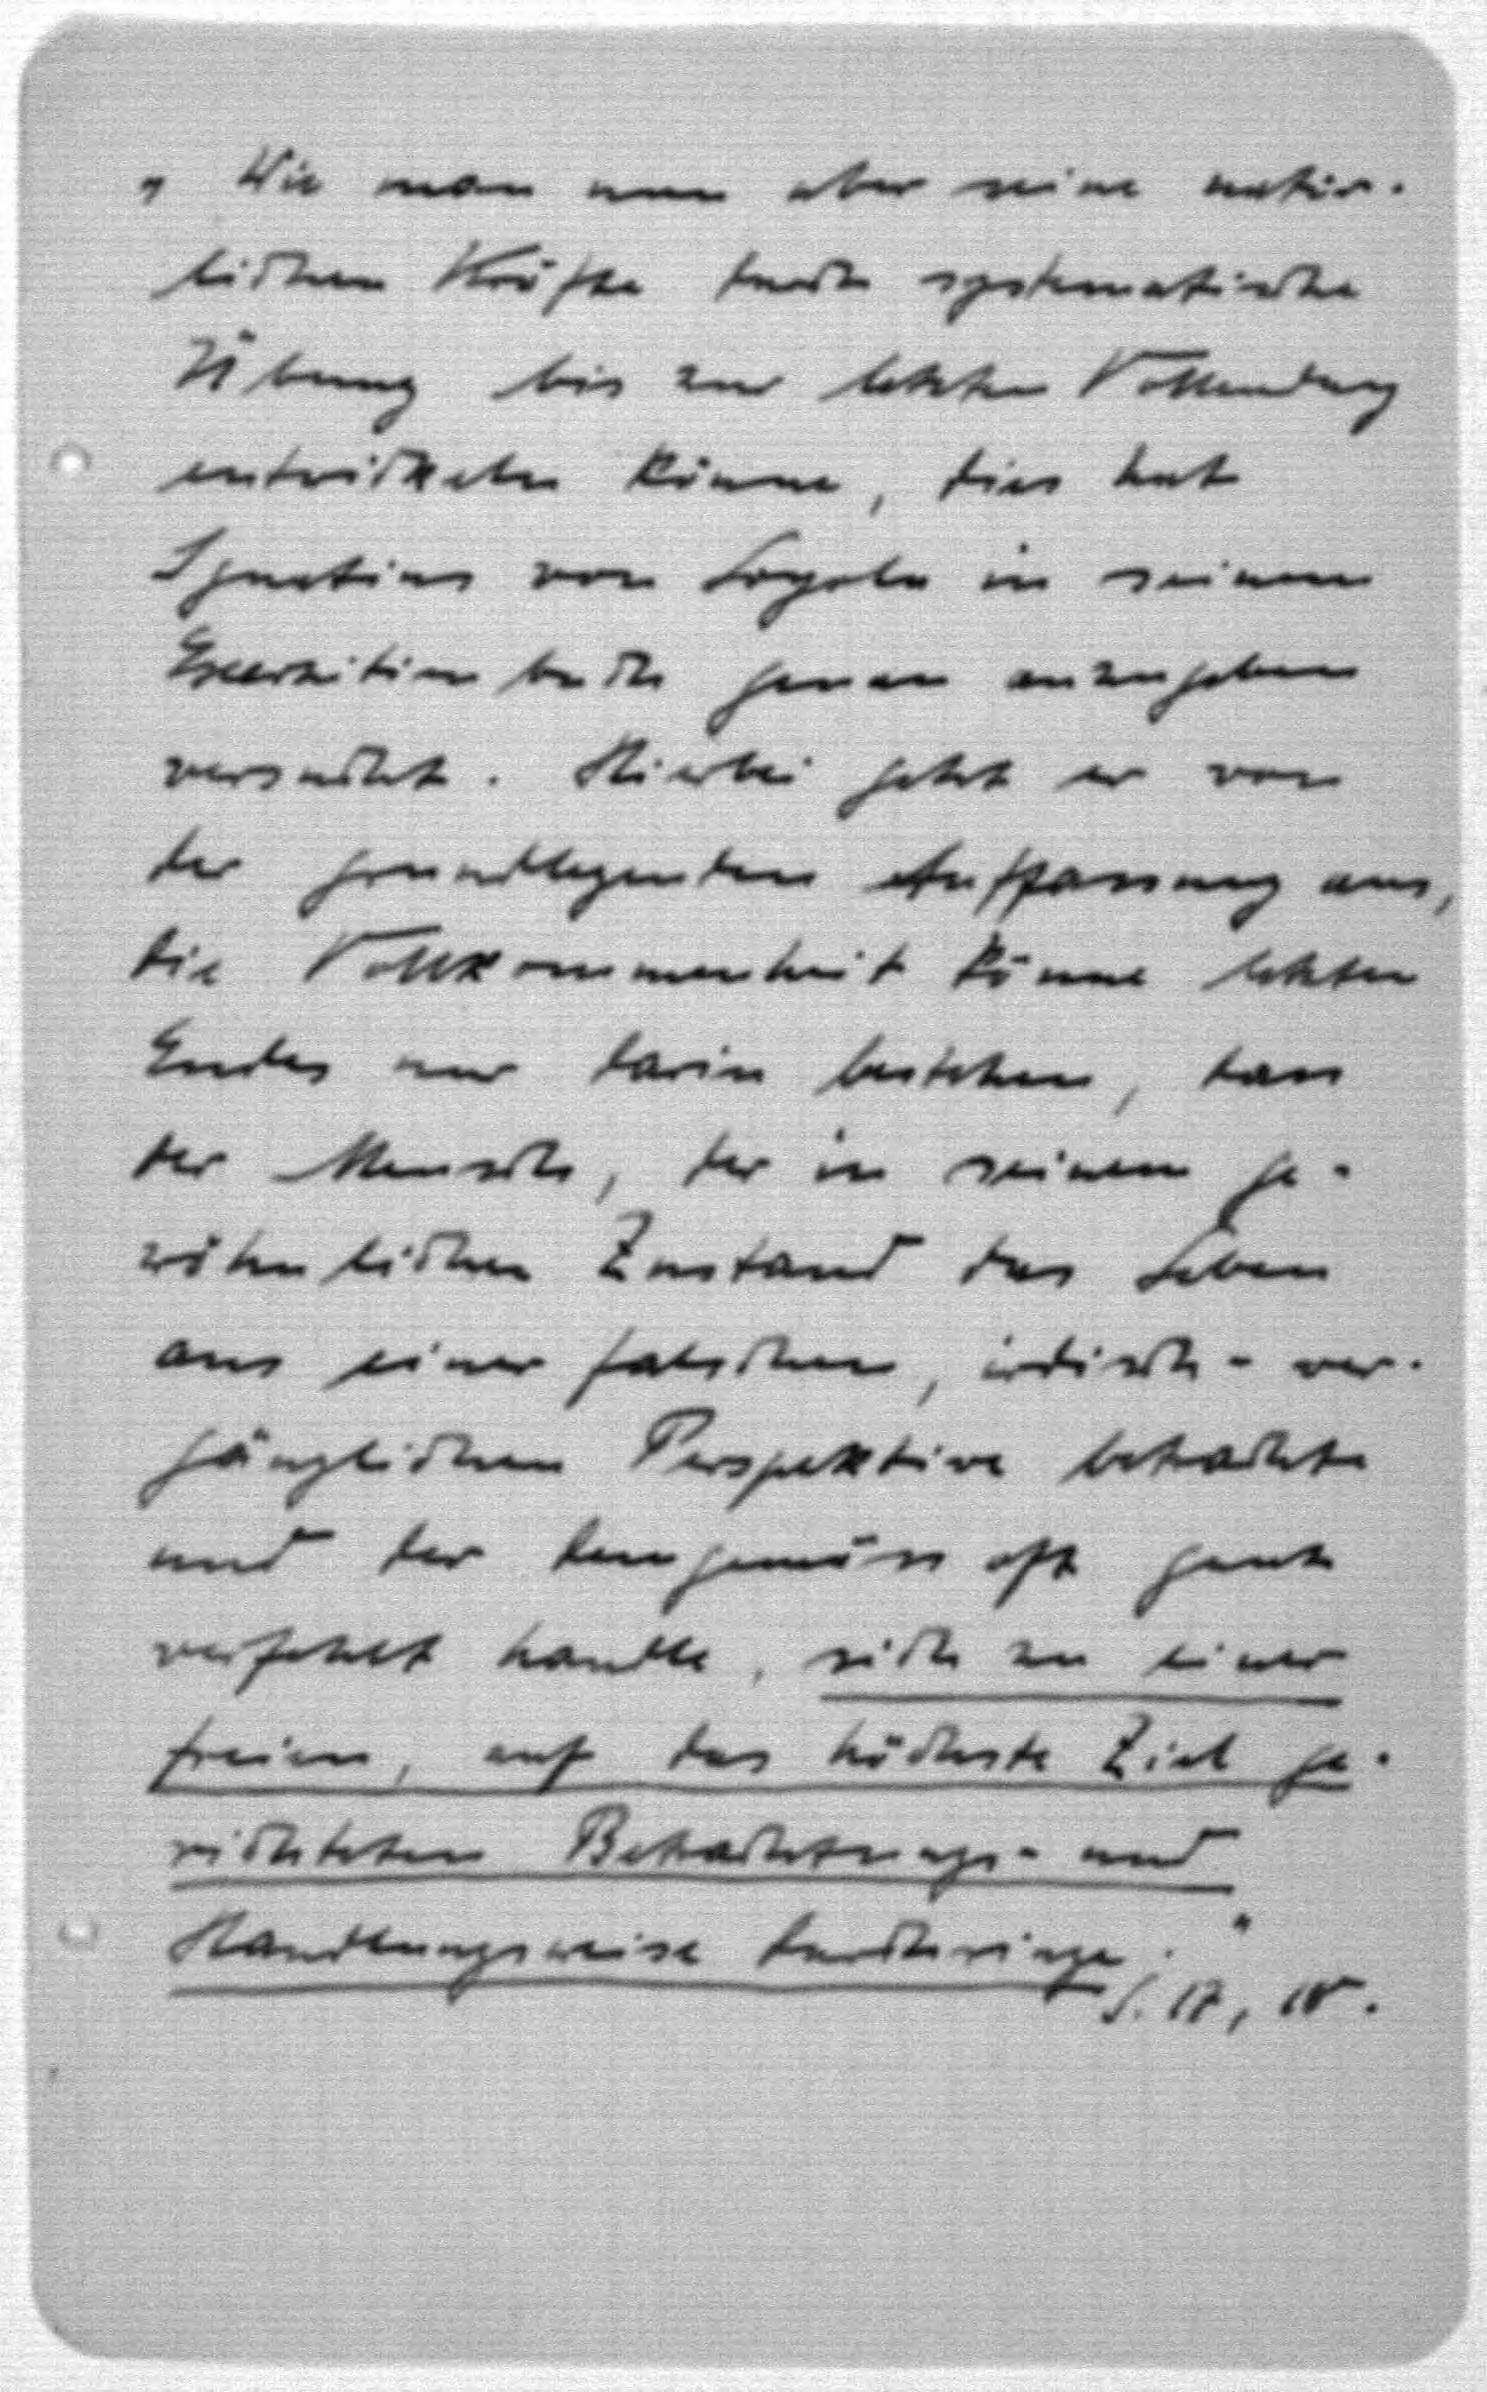 " Wie man nun aber seine natür-
lichen Kräfte durch systematische
Übung bis zur letzten Vollendung
entwickeln könne, dies hat
Ignatius von Loyola in seinem
Exerzitienbuch genau anzugeben
versucht. Hierbei geht er von
der grundlegenden Auffassung aus,
die Vollkommenheit könne letzten
Endes nur darin bestehen, dass
der Mensch, der in seinem ge-
wöhnlichen Zustand das Leben
aus einer falschen, irdisch-ver-
gänglichen Perspektive betrachte
und der demgemäss oft ganz
verfehlt handle, sich zu einer
freien, auf das höchste Ziel ge-
richteten Betrachtungs- und
Handlungsweise durchringe."
S. 17, 18.